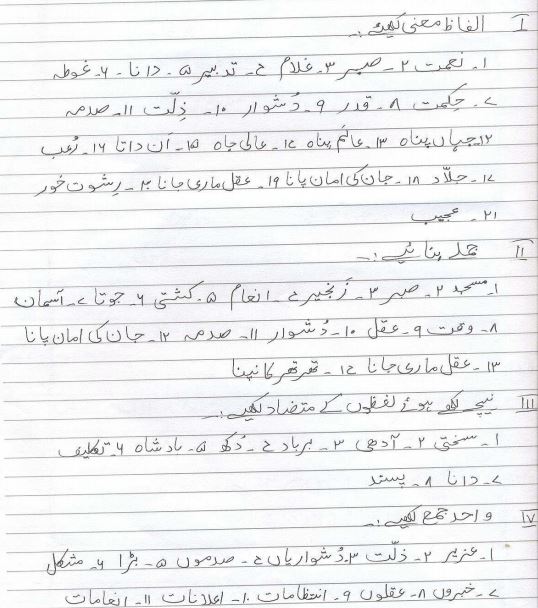 I الفاظ معنی لکھیے:-
۱۔ نعمت ۲۔ صبر ۳۔ غلام ۴۔ تدبیر ۵۔ دانا ۔ ۶۔ غوطہ
۷۔ حِکمت ۸۔ قدر ۹۔ دُشوار ۱۰۔ ذِلّت ۱۱۔ صدمہ
۱۲۔ جہاں پناہ ۱۳۔ عالَم پناہ ۱۴۔ عالی جاہ ۱۵۔ اَن داتا ۱۶۔ رُعب
۱۷۔ جلّاد ۱۸۔ جان کی امان پانا ۱۹۔ عقل ماری جانا ۲۰۔ رِشوت خور
۲۱۔ عجیب
II جملے بنائیے:-
۱۔ مسجد ۲۔ صبر ۳۔ زَنجیر ۴۔ انعام ۵۔ کشتی ۶۔ جوتا ۷۔ آسمان
۸۔ وقت ۹۔ عقل ۱۰۔ دُشوار ۱۱۔ صدمہ ۱۲۔ جان کی امان پانا
۱۳۔ عقل ماری جانا ۱۴۔ تھر تھر کانپنا
III نیچے لکھے ہوئے لفظوں کے متضاد لکھیے:-
۱۔ سختی ۲۔ آدھی ۳۔ برباد ۴۔ دُکھ ۵۔ بادشاہ ۶۔ تکلیف
۷۔ دانا ۸۔ پسند
IV واحد جمع لکھیے:-
۱۔ عزیر ۲۔ ذلّت ۳۔ دُشواریاں ۴۔ صدموں ۵۔ بڑا ۶۔ مشکل
۷۔ خبروں ۸۔ عقلوں ۹۔ انتظامات ۱۰۔ اعلانات ۱۱۔ انعامات